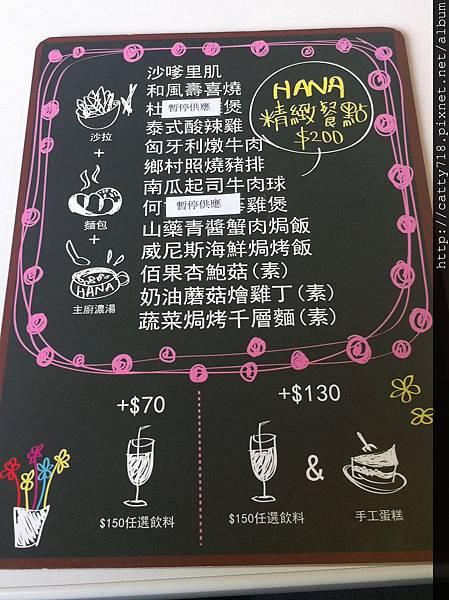 沙嗲里肌
和風壽喜燒
杜 暫停供應 煲
泰式酸辣雞
匈牙利燉牛肉
鄉村照燒豬排
南瓜起司牛肉球
何 暫停供應 雞煲
山藥青醬蟹肉焗飯
威尼斯海鮮焗烤飯
佰果杏鮑菇(素)
奶油蘑菇燴雞丁(素)
蔬菜焗烤千層麵(素)
HANA
精緻餐點
$200
沙拉
+
麵包
+
HANA
主廚濃湯
+$70
$150任選飲料
+$130
&
$150任選飲料
手工蛋糕
http://catty718.pixnet.net/album